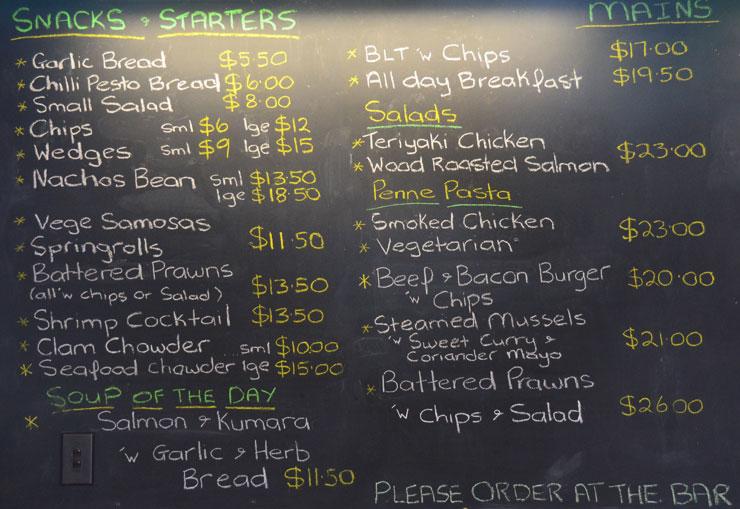 SNACKS & STARTERS
* Garlic Bread $5·50
* Chilli Pesto Bread $6·00
* Small Salad $8·00
* Chips sml $6 lge $12
* Wedges sml $9 lge $15
* Nachos Bean sml $13·50
lge $18·50
* Vege Samosas
* Springrolls $11·50
* Battered Prawns
(all 'w chips or Salad) $13·50
* Shrimp Cocktail $13·50
* Clam Chowder ...sml $10.00
* Seafood chowder lge $15·00
SOUP OF THE DAY
* Salmon & Kumara
'w Garlic & Herb
Bread $11·50
MAINS
* BLT 'w Chips $17·00
* All day Breakfast $19·50
Salads
* Teriyaki Chicken
* Wood Roasted Salmon $23·00
Penne Pasta
* Smoked Chicken
* Vegetarian $23·00
* Beef & Bacon Burger $20·00
'w Chips
* Steamed Mussels
'w Sweet Curry & $21·00
Coriander Mayo
* Battered Prawns
'w Chips & Salad $26·00
PLEASE ORDER AT THE BAR